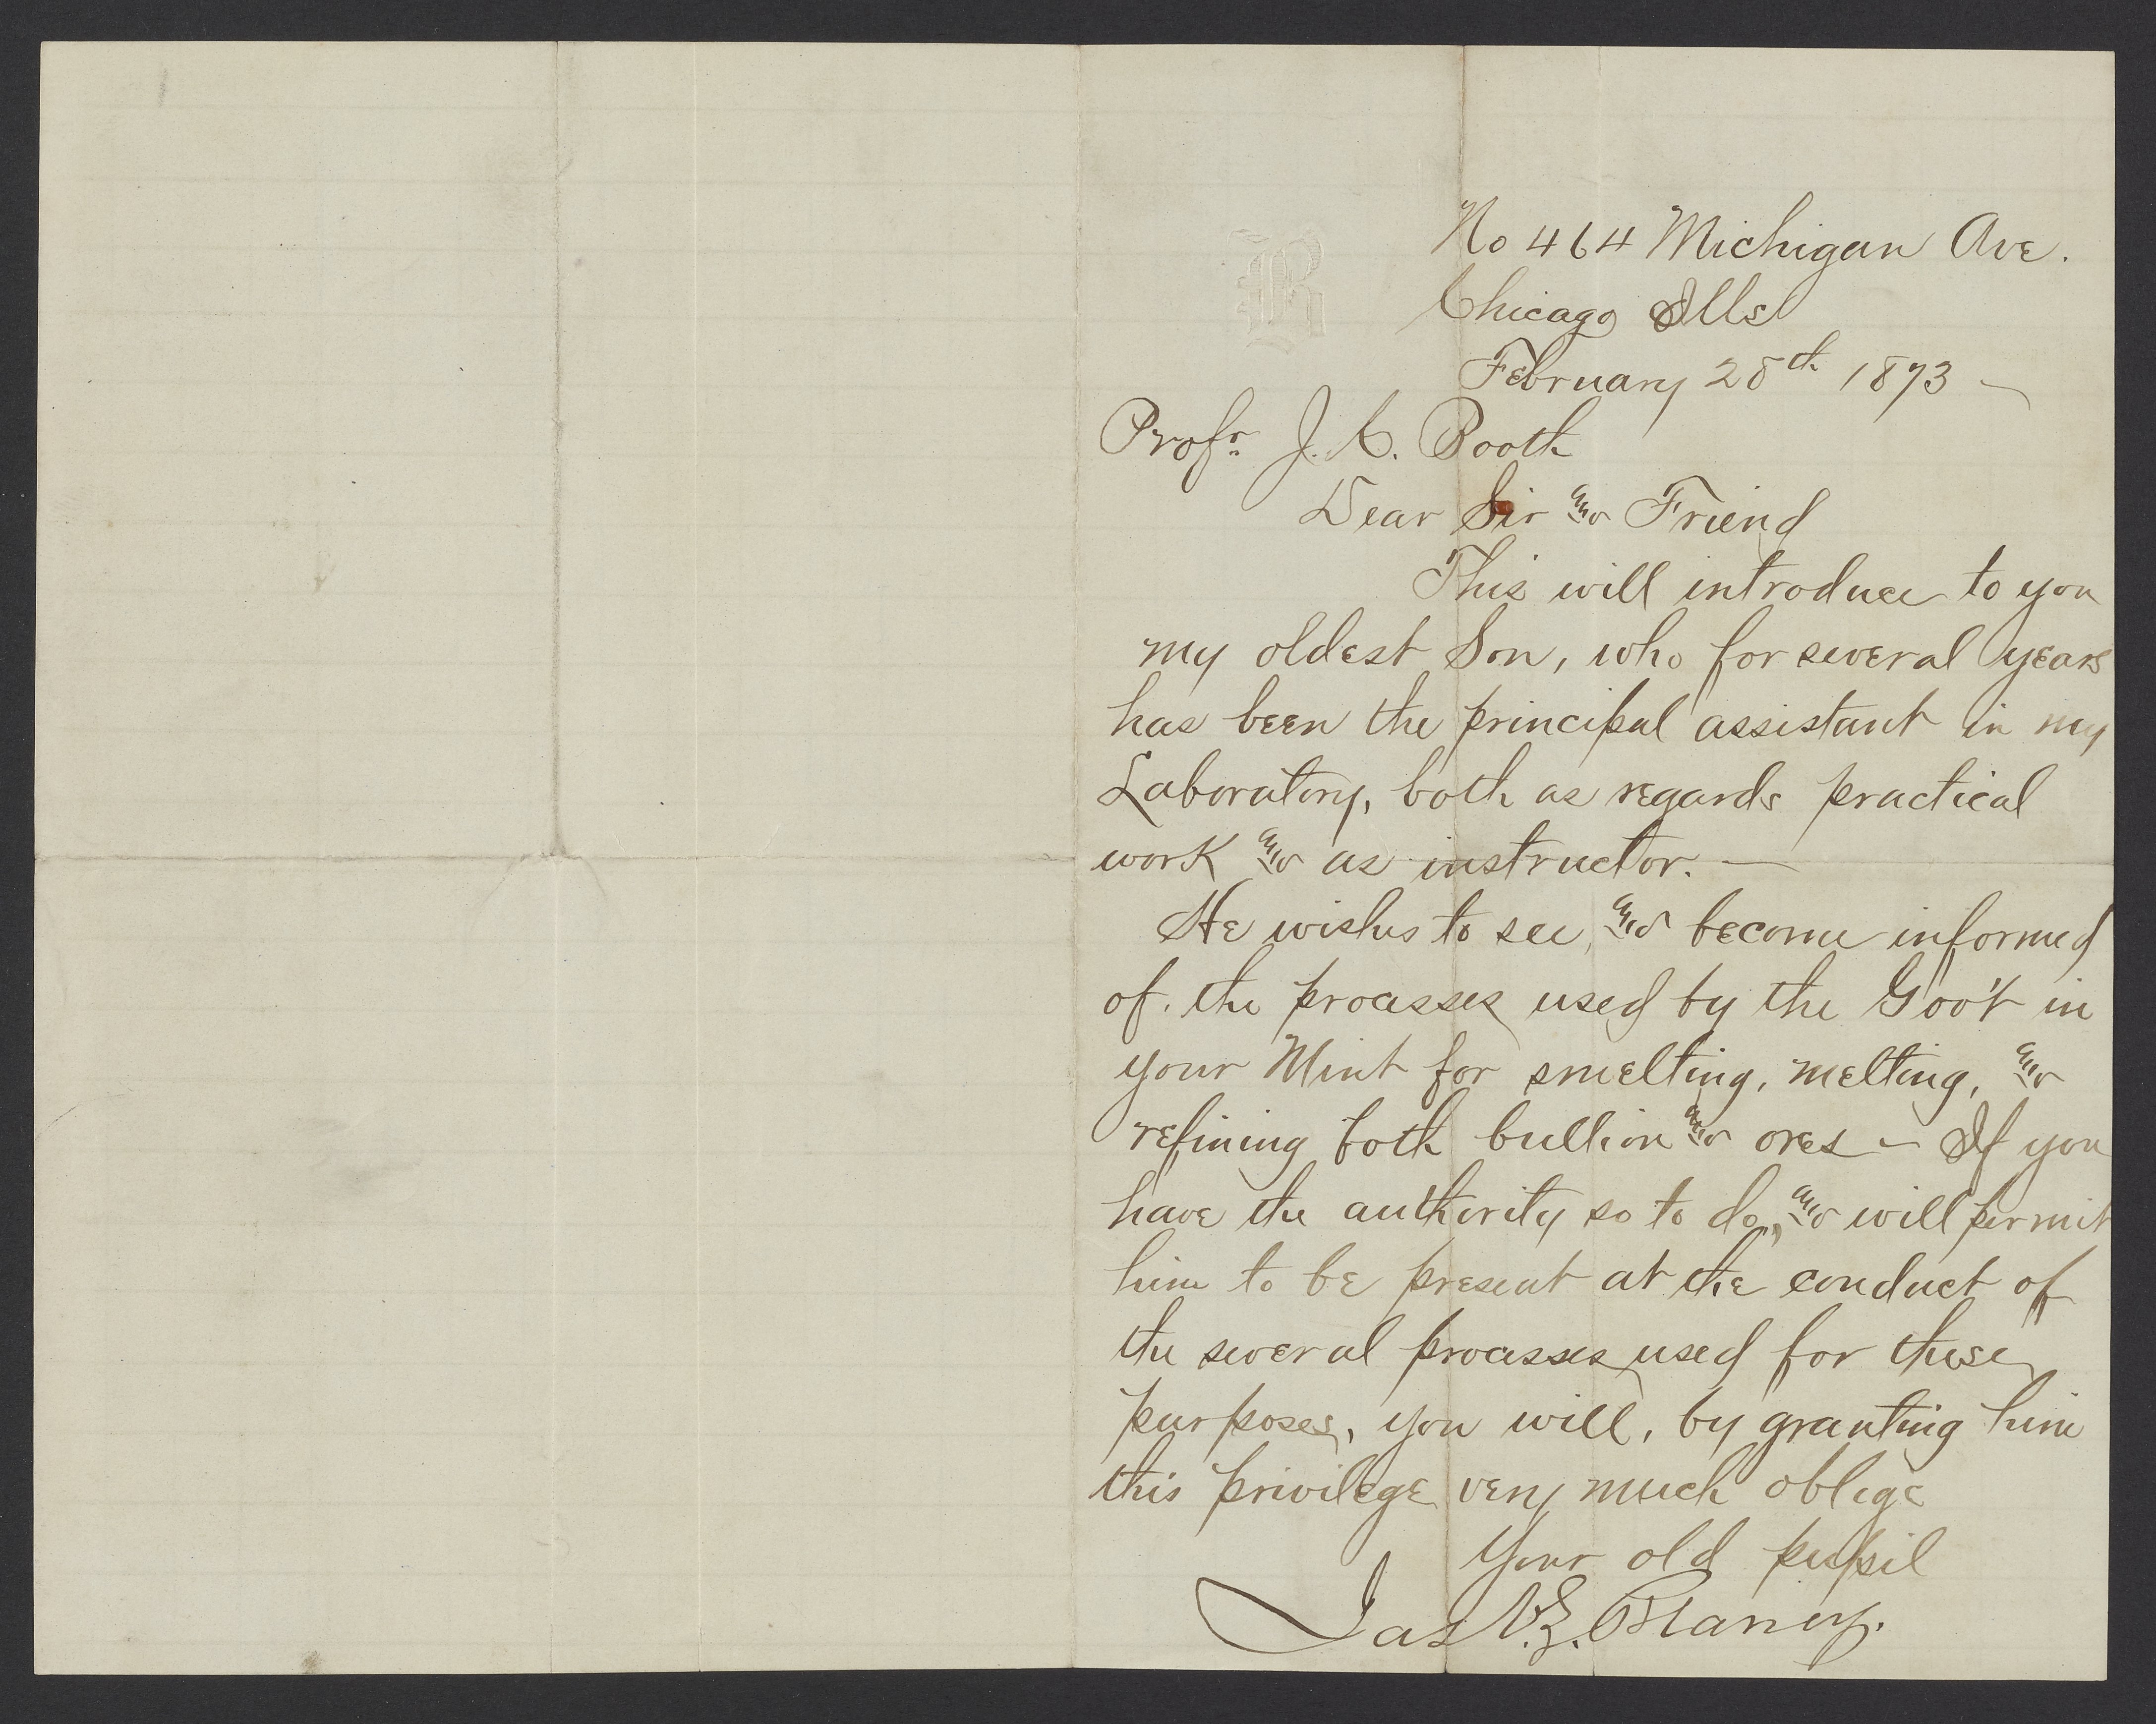 R
No 464 Michigan Ave.
Chicago Ills
February 28th 1873 —
Profr. J. C. Booth
Dear Sir and Friend
This will introduce to you
my oldest Son, who for several years
has been the principal assistant in my
Laboratory, both as regards practical
work and as instructor. —
He wishes to see, and become informed
of the processes used by the Gov't in
your Mint for smelting, melting, and
refining both bullion and ores — If you
have the authority so to do, and will permit
him to be present at the conduct of
the several processes used for these
purposes, you will, by granting him
this privilege very much oblige
Your old pupil
Jas V. Z. Blaney.